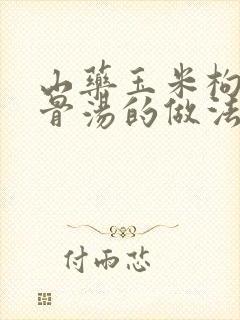 山藥玉米枸
骨湯的做法
付雨芯